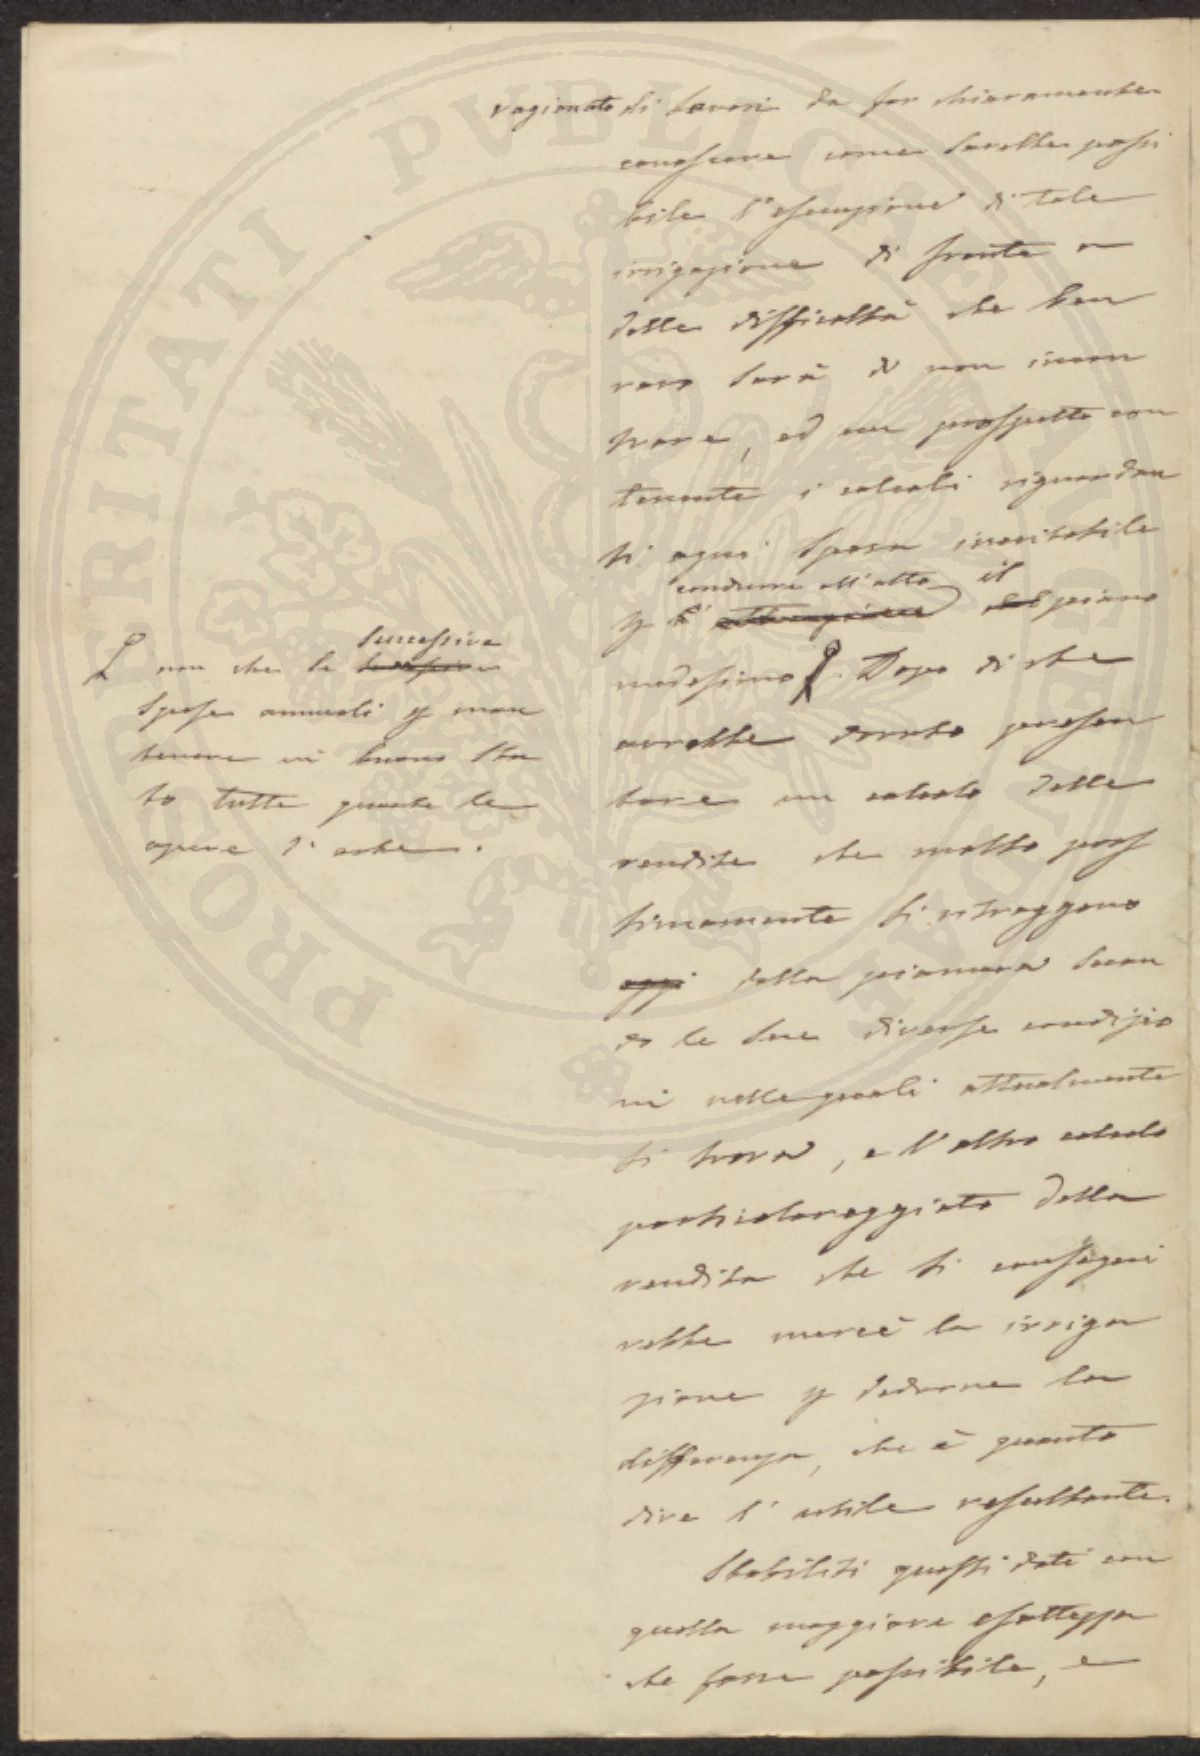 ragionato di lavori da far chiaramente
conoscere come sarebbe possi
bile l'esecuzione di tale
irrigazione di fronte a
delle difficoltà che ben
raro sarà di non incon
trare, ed un prospetto con
tenente i calcoli riguardan
ti ogni spesa inevitabile
condurre all'atto il
p piano
medesimo. Dopo di che
avrebbe dovuto presen
tare un calcolo delle
rendite che molto pros
simamente si ritraggono
oggi dalla pianura secon
do le sue diverse condizio
ni nelle quali attualmente
si trova, e l'altro calcolo
particolareggiato della
rendita che si consegui
rebbe mercè la irriga
zione p dedurne la
differenza, che è quanto
dire l'utile resultante.
Stabiliti questi dati con
quella maggiore esattezza
che fosse possibile, e
successive
non che le
spese annuali p man
tenere in buono sta
to tutte queste le
opere d'arte.
PROSPERITATI PVBLICAE AVGENDAE